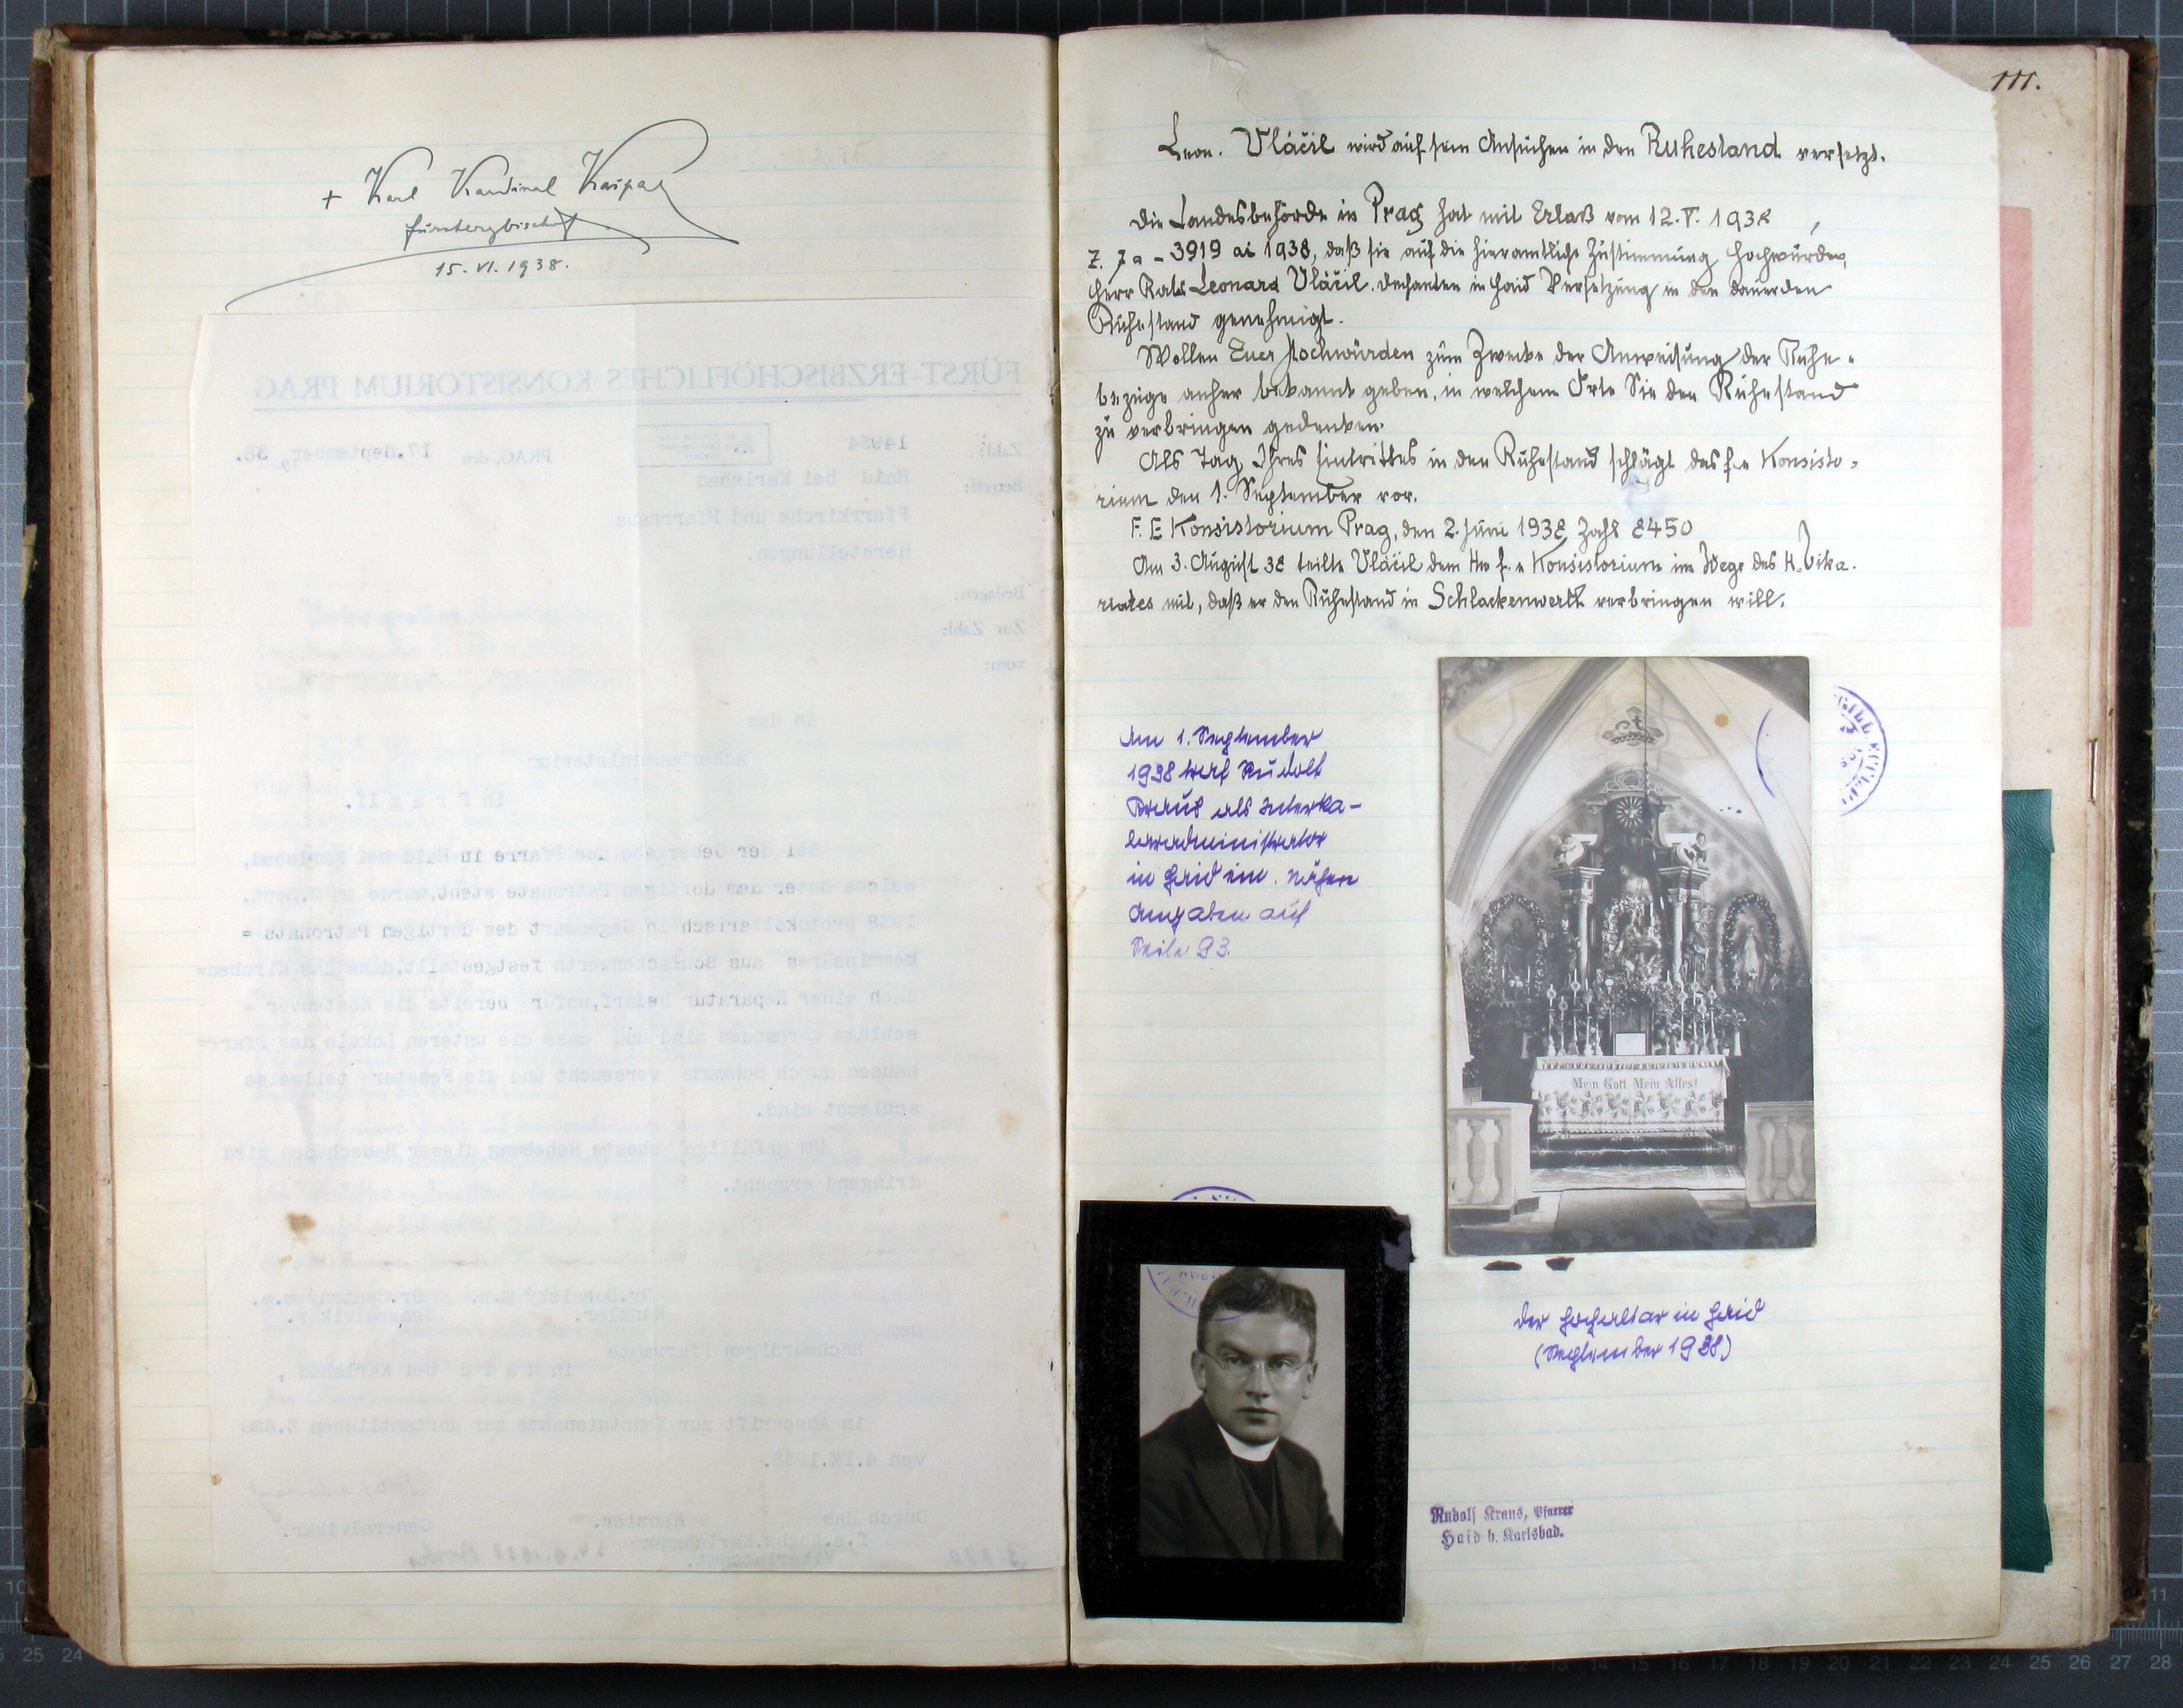 + Karl Kardinal Kašpar
Fürsterzbischof
15. VI. 1938.
111.
Leon. Vláčil wird auf sein Ansuchen in den Ruhestand versetzt.
Die Landesbehörde in Prag hat mit Erlaß vom 12. V. 1938,
Z. 7a - 3919 ai 1938, daß sie auf die hieramtliche Zustimmung Hochwürden
Herr Rats Leonard Vláčil. Dechanten in Haid Versetzung in den dauerden
Ruhestand genehmigt.
Wollen Euer Hochwürden zum Zwecke der Anweisung der Ruhe-
bezüge anher bekannt geben, in welchem Orte Sie den Ruhestand
zu verbringen gedenken.
Als Tag Ihres Eintrittes in den Ruhestand schlägt das f. e Konsisto-
rium den 1. September vor.
F. E Konsistorium Prag, den 2. Juni 1938 Zahl 8450
Am 3. August 38 teilte Vláčil dem Hw f. e Konsistorium im Wege des H. Vika-
riates mit, daß er den Ruhestand in Schlackenwerth verbringen will.
Am 1. September
1938 traf Rudolf
Kraus als Interka-
laradministrator
in Haid ein. Nähere
Angaben auf
Seite 93.
Mein Gott Mein Alles!
Der Hochaltar in Haid
(September 1938)
Rudolf Kraus, Pfarrer
Haid b. Karlsbad.
FÜRST-ERZBISCHÖFLICHES KONSISTORIUM PRAG
Zahl: 14934 PRAG, den 17.September 38.
Betreff: Haid bei Karlsbad
Pfarrkirche und Pfarrhaus
Herstellungen.
Beilagen:
Zur Zahl:
vom:
An das
Ackerbauministerium
in P r a g II.
Bei der Uebergabe der Pfarre in Haid bei Karlsbad,
welche unter dem dortigen Patronate steht, wurde am
1938 protokollarisch in Gegenwart des dortigen Patronats =
kommissäres aus Schlackenwerth festgestellt, dass das Kirchen=
dach einer Reparatur bedarf, wofür bereits die Kostenvor =
schläge vorhanden sind und dass die unteren Lokale des Pfarr=
hauses durch Schwamm verseucht und die Fenster teilweise
schlecht sind.
Um gefällige eheste Behebung dieser Bauschäden wird
dringend ersucht.
Kanzler. Generalvikar.
Hochwürdigen Pfarramte
in H a i d bei Karlsbad,
in Abschrift zur Kenntnisnahme zur dortamtlichen Z.680
von 4.IX.1938.
Durch das Kanzler. Generalvikar.